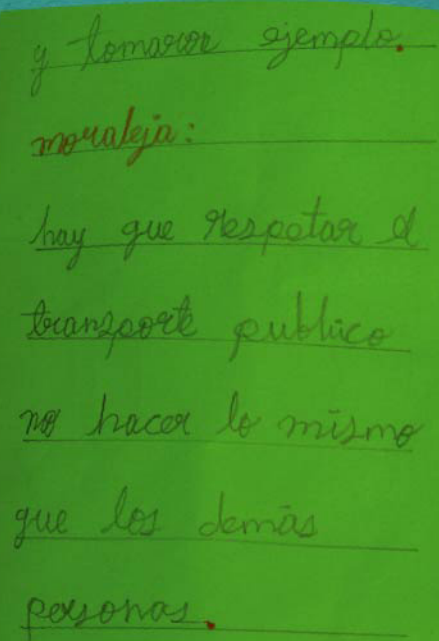 y tomaron ejemplo.
moraleja:
hay que respetar el
transporte publico
no hacer lo mismo
que los demás
personas.